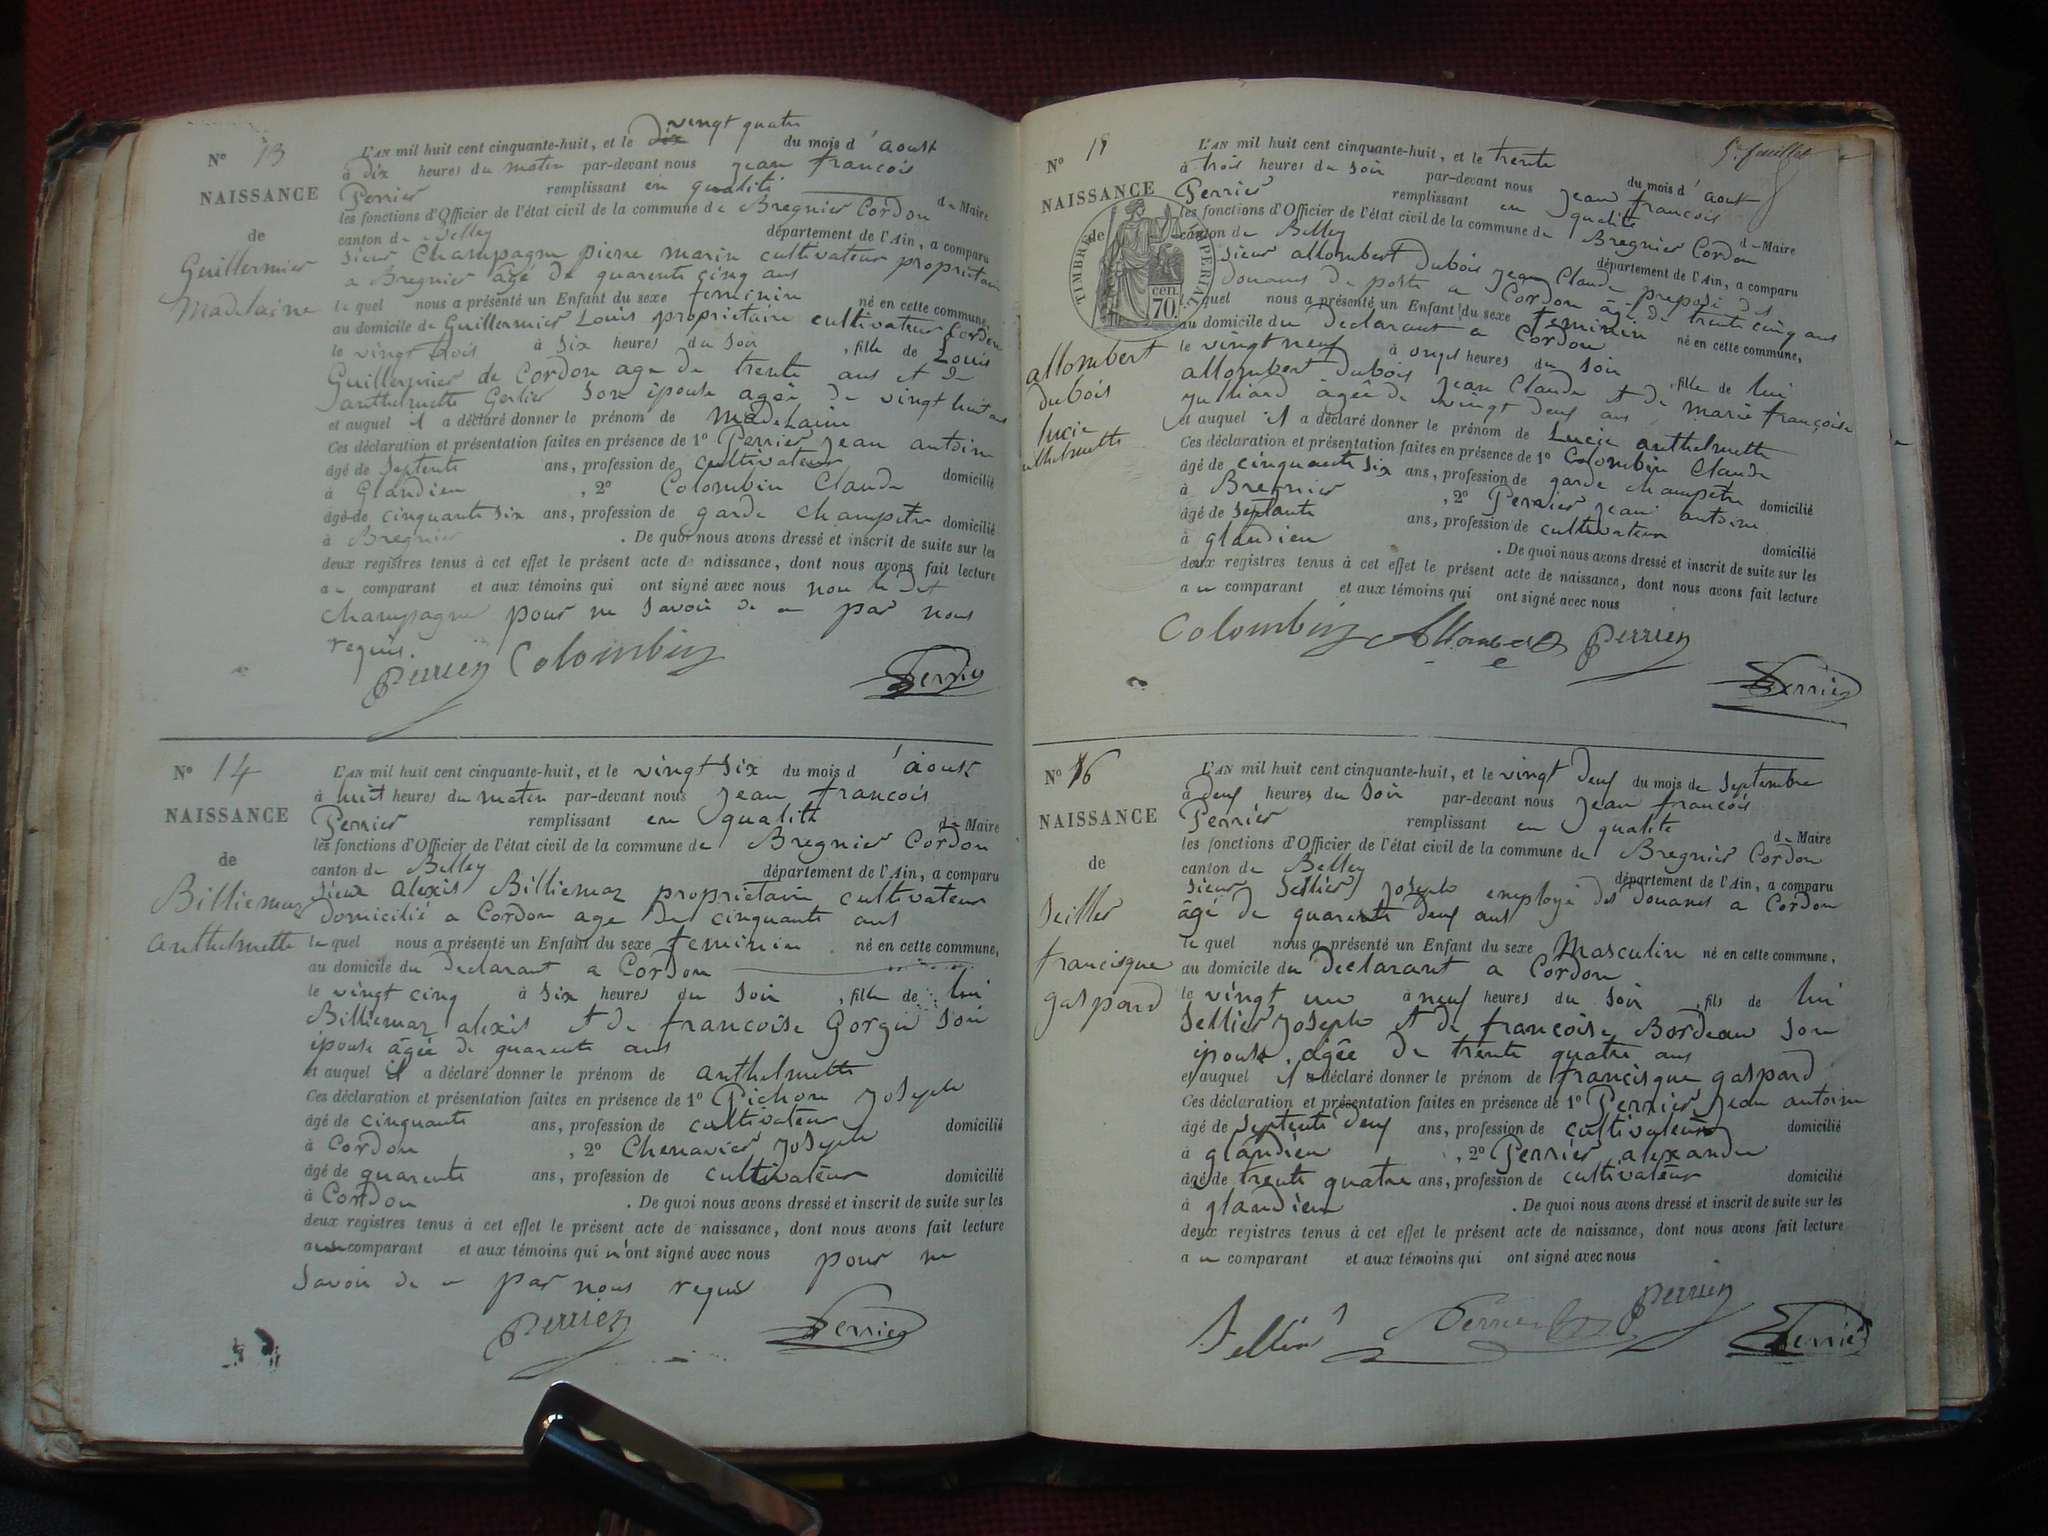 N° 13
NAISSANCE
de
Guillermier
Madelaine
vingt quatre
L'AN mil huit cent cinquante-huit, et le dix du mois d'aoust
à dix heures du matin par-devant nous jean francois
Perrier remplissant en qualité de Maire
les fonctions d'Officier de l'état civil de la commune de Bregnier Cordon
canton de Belley département de l'Ain, a comparu
sieur Champagne pierre marin cultivateur proprietaire
a Bregnier âgé de quarente cinq ans
le quel nous a présenté un Enfant du sexe feminin né en cette commune,
au domicile de Guillermier Louis proprietaire cultivateur a Cordon
le vingt trois à six heures du soir, fille de Louis
Guillermier de Cordon age de trente ans et de
anthelmette Gorlier son epouse agée de vingt huit ans
et auquel il a déclaré donner le prénom de Madelaine
Ces déclaration et présentation faites en présence de 1° Perrier jean antoine
âgé de septente ans, profession de cultivateur domicilié
à Glandieu, 2° Colombin Claude
âgé de cinquante six ans, profession de garde champetre domicilié
à Bregnier. De quoi nous avons dressé et inscrit de suite sur les
deux registres tenus à cet effet le présent acte de naissance, dont nous avons fait lecture
au comparant et aux témoins qui ont signé avec nous non le dit
Champagne pour ne savoir de ce par nous
requis.
Perrier Colombin Perrier
N° 14
NAISSANCE
de
Billiemaz
anthelmette
L'AN mil huit cent cinquante-huit, et le vingt six du mois d'aoust
à huit heures du matin par-devant nous jean francois
Perrier remplissant en qualité de Maire
les fonctions d'Officier de l'état civil de la commune de Bregnier Cordon
canton de Belley département de l'Ain, a comparu
sieur alexis Billiemaz proprietaire cultivateur
domicilié a Cordon age de cinquante ans
le quel nous a présenté un Enfant du sexe feminin né en cette commune,
au domicile du declarant a Cordon
le vingt cinq à six heures du soir, fille de lui
Billiemaz alexis et de francoise Gorgu son
epouse âgée de quarente ans
et auquel il a déclaré donner le prénom de anthelmette
Ces déclaration et présentation faites en présence de 1° Pichon joseph
âgé de cinquante ans, profession de cultivateur domicilié
à Cordon, 2° Chenavier joseph
âgé de quarente ans, profession de cultivateur domicilié
à Cordon. De quoi nous avons dressé et inscrit de suite sur les
deux registres tenus à cet effet le présent acte de naissance, dont nous avons fait lecture
au comparant et aux témoins qui n'ont signé avec nous pour ne
savoir de ce par nous requis
Perrier Perrier
5e feuillet
N° 15
NAISSANCE
de
TIMBRE IMPERIAL
70 cen.
allombert
dubois
lucie
anthelmette
L'AN mil huit cent cinquante-huit, et le trente du mois d'aout
à trois heures du soir par-devant nous jean francois
Perrier remplissant en qualité de Maire
les fonctions d'Officier de l'état civil de la commune de Bregnier Cordon
canton de Belley département de l'Ain, a comparu
sieur allombert dubois jean Claude preposé des
douanes de poste a Cordon âgé de trente cinq ans
le quel nous a présenté un Enfant du sexe feminin né en cette commune,
au domicile du declarant a Cordon
le vingt neuf à onze heures du soir, fille de lui
allombert dubois jean Claude et de marie françoise
julliard âgée de vingt deux ans
et auquel il a déclaré donner le prénom de Lucie anthelmette
Ces déclaration et présentation faites en présence de 1° Colombin Claude
âgé de cinquante six ans, profession de garde champetre domicilié
à Bregnier, 2° Perrier jean antoine
âgé de septante ans, profession de cultivateur domicilié
à glandieu. De quoi nous avons dressé et inscrit de suite sur les
deux registres tenus à cet effet le présent acte de naissance, dont nous avons fait lecture
au comparant et aux témoins qui ont signé avec nous
Colombin Allombert Perrier
Perrier
N° 16
NAISSANCE
de
Seillier
francisque
gaspard
L'AN mil huit cent cinquante-huit, et le vingt deux du mois de septembre
à deux heures du soir par-devant nous jean francois
Perrier remplissant en qualité de Maire
les fonctions d'Officier de l'état civil de la commune de Bregnier Cordon
canton de Belley département de l'Ain, a comparu
sieur Sellier joseph employé des douanes a Cordon
âgé de quarente deux ans
le quel nous a présenté un Enfant du sexe Masculin né en cette commune,
au domicile du declarant a Cordon
le vingt un à neuf heures du soir, fils de lui
Sellier joseph et de francoise Bordeau son
epouse agée de trente quatre ans
et auquel il a déclaré donner le prénom de francisque gaspard
Ces déclaration et présentation faites en présence de 1° Perrier jean antoine
âgé de septente deux ans, profession de cultivateur domicilié
à glandieu, 2° Perrier alexandre
âgé de trente quatre ans, profession de cultivateur domicilié
à glandieu. De quoi nous avons dressé et inscrit de suite sur les
deux registres tenus à cet effet le présent acte de naissance, dont nous avons fait lecture
au comparant et aux témoins qui ont signé avec nous
Sellier Perrier Perrier Perrier